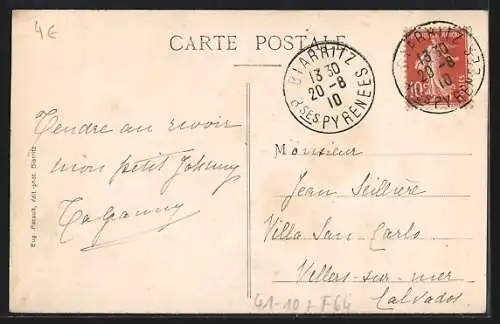 4€
CARTE POSTALE
BIARRITZ
13 30
20 -8
10
Bses PYRENEES
BIARRITZ
13 30
20 -8
10
Bses PYRENEES
10c
Tendre au revoir
mon petit Johnny
Ta Ganny
Eug. Pascault, édit.-phot. Biarritz
Monsieur
Jean Seillière
Villa San Carlo
Villers-sur-mer
Calvados
41-10 + F64